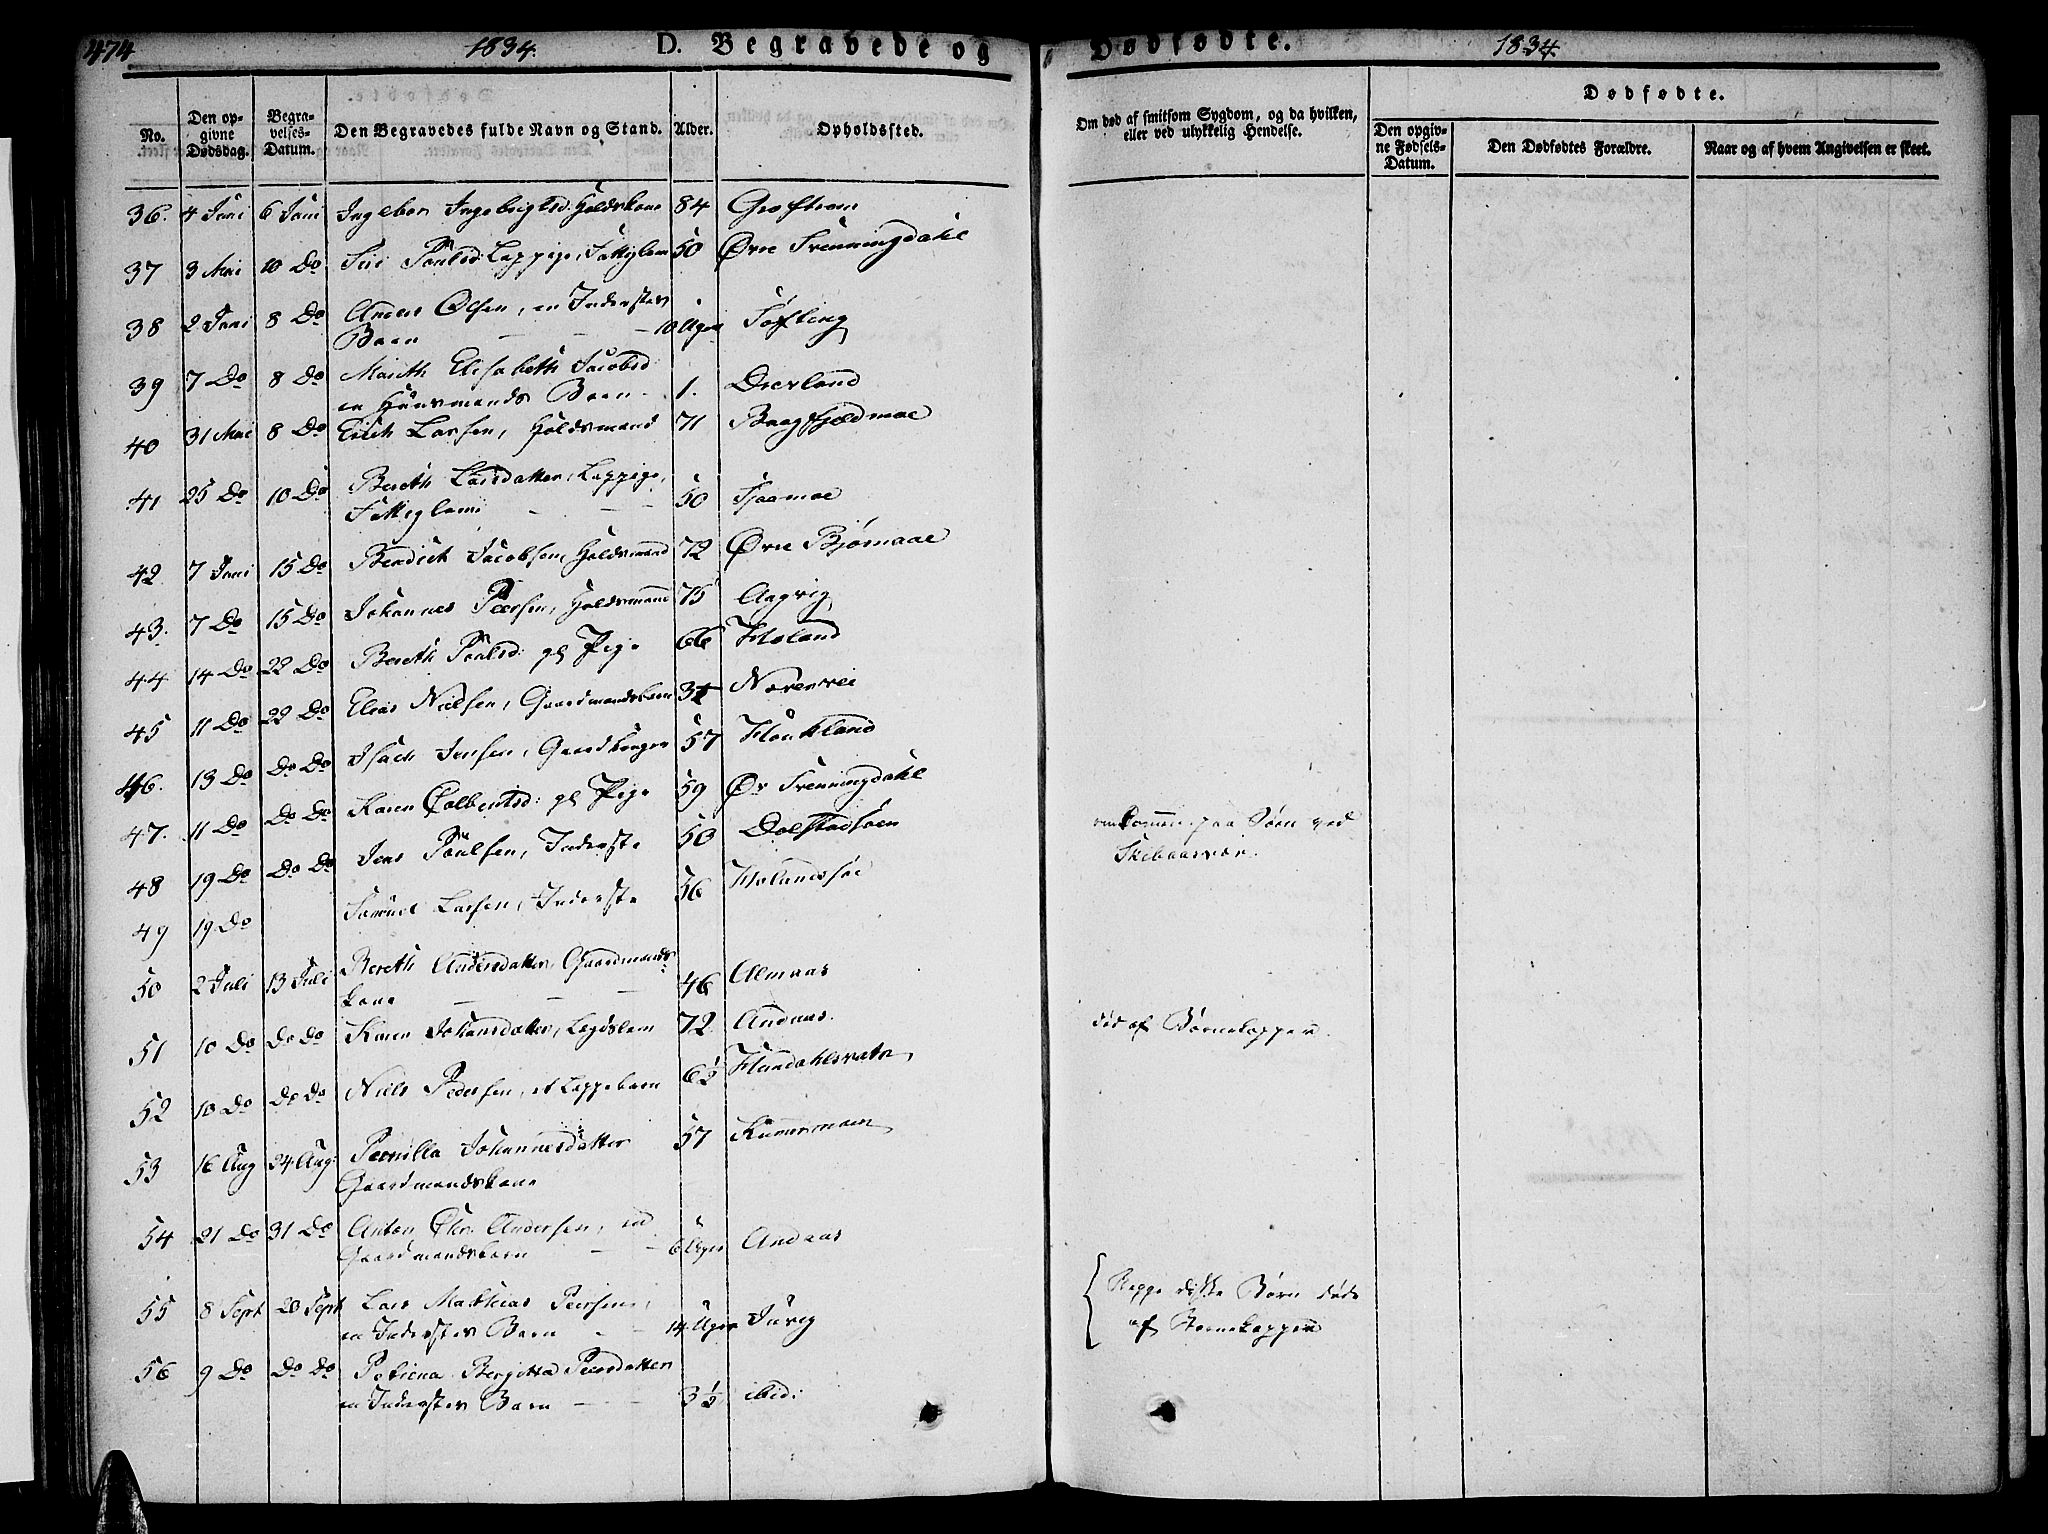 474 1834. D. Begravede og Dødfødte. 1834.
No. Den opgivne Dødsdag. Begravelses-Datum. Den Begravedes fulde Navn og Stand. Alder. Opholdssted.
Om død af smitsom Sygdom, og da hvilken, eller ved ulykkelig Hendelse. Den opgivne Fødsels-Datum. Den Dødfødtes Forældre. Naar og af hvem Angivelsen er skeet.
Dødfødte.
36. 4 Juni 6 Juni Ingebor Ingebrigtsd: Holdskone 84
37 3 Mai 10 Do Siri Poulsd: Lappige, Fattiglem 50 Øvre Svenningdahl
38 2 Juni 8 Do Anders Olsen, en Inderstes
Barn - - - 10 Uger Tøftling
39 7 Do 8 Do Marith Elisabeth Jacobsd:
en Huusmands Barn - 1. Drevland
40 31 Mai 8 Do Erich Larsen, Holdsmand 71 Baagfjeldmoe
41 25 Do 10 Do Bereth Larsdatter, Lappige,
Fattiglem - - - 50
42 7 Juni 15 Do Bendich Jacobsen, Holdsmand 72 Øvre Bjømaae
43. 7 Do 15 Do Johannes Peersen, Holdsmand 75 Aagvig
44 14 Do 22 Do Bereth Poulsd: gl Pige 66 Holand
45 11 Do 22 Do Elias Nielsen, Gaardmandskarn
46. 13 Do Do Do Isach Jensen, Gaardbruger 57 Houkland
47. 11 Do Do Do Karen Colbentsd: gl Pige 59 Øv Svenningdahl
48 19 Do Do Do Jens Poulsen, Inderste 50 Dolstadsøen
omkommen paa Søen ved
Skibaasvær.
49 19 Do Samuel Larsen, Inderste 56 Holandsøe
50 2 Juli 13 Juli Bereth Andersdatter, Gaardmands-
kone - - - 46 Almaas
51 10 Do Do Do Karen Johansdatter, Legdslem 72 Andaas.
død af Børnekopper.
52 10 Do Do Do Niels Pedersen, et Lappebarn 6½
53 16 Aug 24 Aug: Pernilla Johannesdatter 57
Gaardmandskone
54 21 Do 31 Do Anton Chr. Andersen, en
Gaardmandsbarn - - 6 Uger Andaas
55 8 Sept 20 Sept Lars Mathias Peersen,
en Inderstes Barn - - 14 Uger Juvig
Begge disse Børn døde
af Børnekopper
56 9 Do Do Do Petrina Bergitta Peersdatter
en Inderstes Barn - - 3½ ibid: